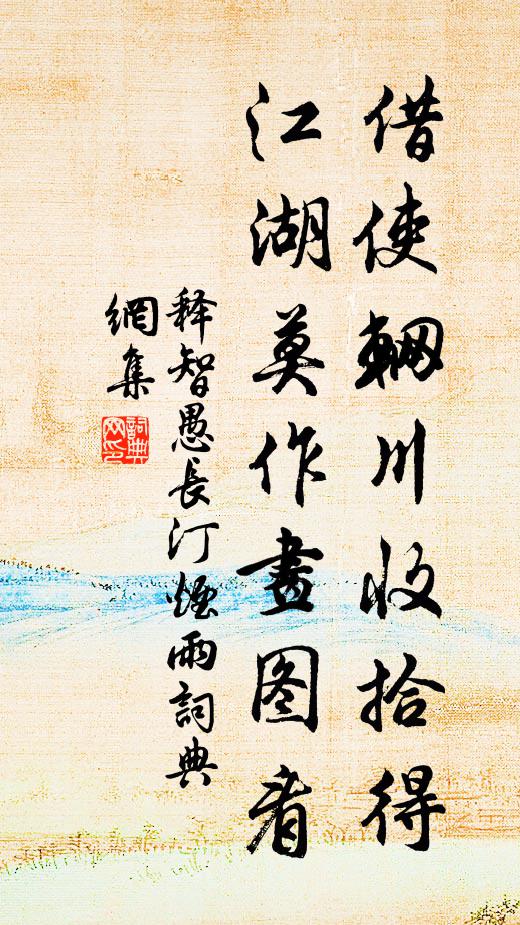 借使輞川收拾得
江湖莫作畫图看
释智愚長汀煙雨詞典
網集
詞典
网印